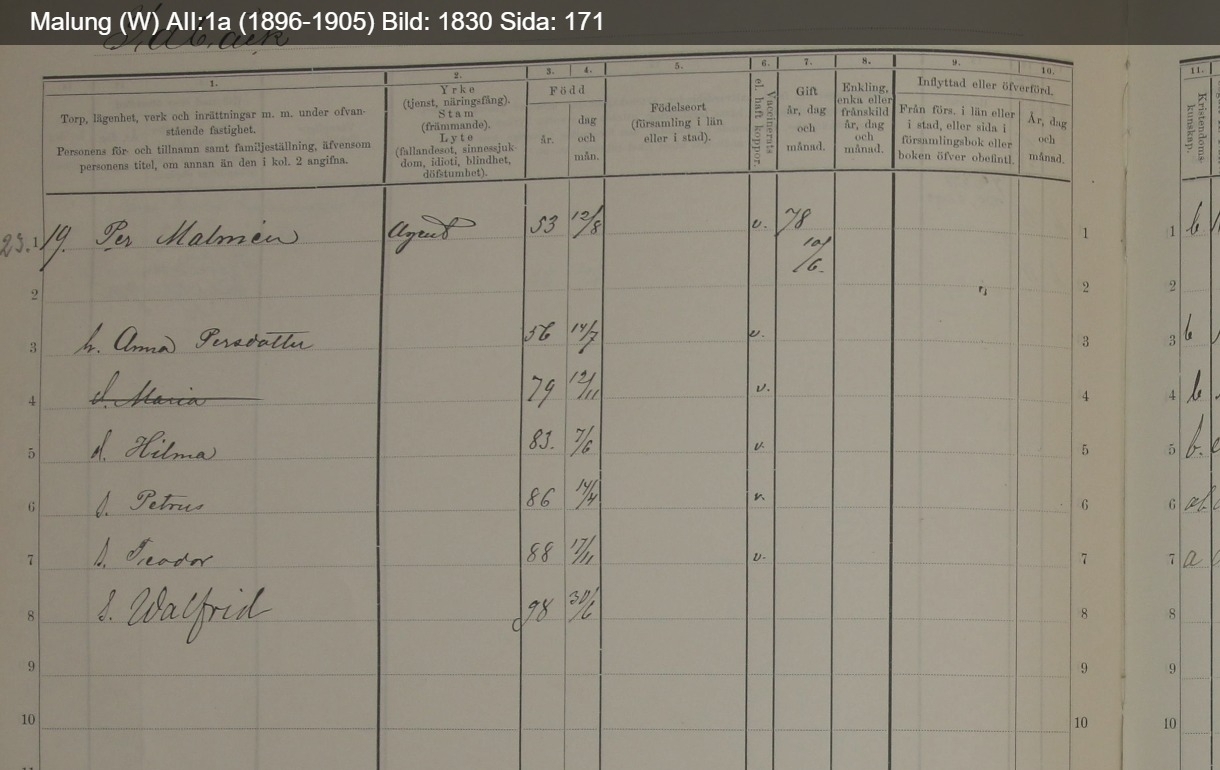 Malung (W) AII:1a (1896-1905) Bild: 1830 Sida: 171
1. 2. 3. 4. 5. 6. 7. 8. 9. 10. 11.
Torp, lägenhet, verk och inrättningar m. m. under ofvan-
stående fastighet.
Personens för- och tillnamn samt familjeställning, äfvensom
personens titel, om annan än den i kol. 2 angifna.
Yrke
(tjenst, näringsfång).
Stam
(främmande).
Lyte
(fallandesot, sinnessjuk-
dom, idioti, blindhet,
döfstumhet).
Född
år.
dag
och
mån.
Födelseort
(församling i län
eller i stad).
Vaccinerats
el. haft koppor.
Gift
år, dag
och
månad.
Enkling,
enka eller
frånskild
år, dag
och
månad.
Inflyttad eller öfverförd.
Från förs. i län eller
i stad, eller sida i
församlingsbok eller
boken öfver obefintl.
År, dag
och
månad.
Kristendoms-
kunskap.
23. 1 19. Per Malmén Agent 53 12/8 v. 78 1 1 b
10/6.
2 2 2
3 h. Anna Persdotter 56 14/7 v. 3 3 b
4 d. Maria 79 12/11 v. 4 4 b
5 d. Hilma 83. 7/6 v. 5 5 b.
6 s. Petrus 86 14/4 v. 6 6 ab
7 s. Teodor 88 17/11 v. 7 7 a
8 s. Walfrid 98 30/6 8 8
9 9 9
10 10 10
11